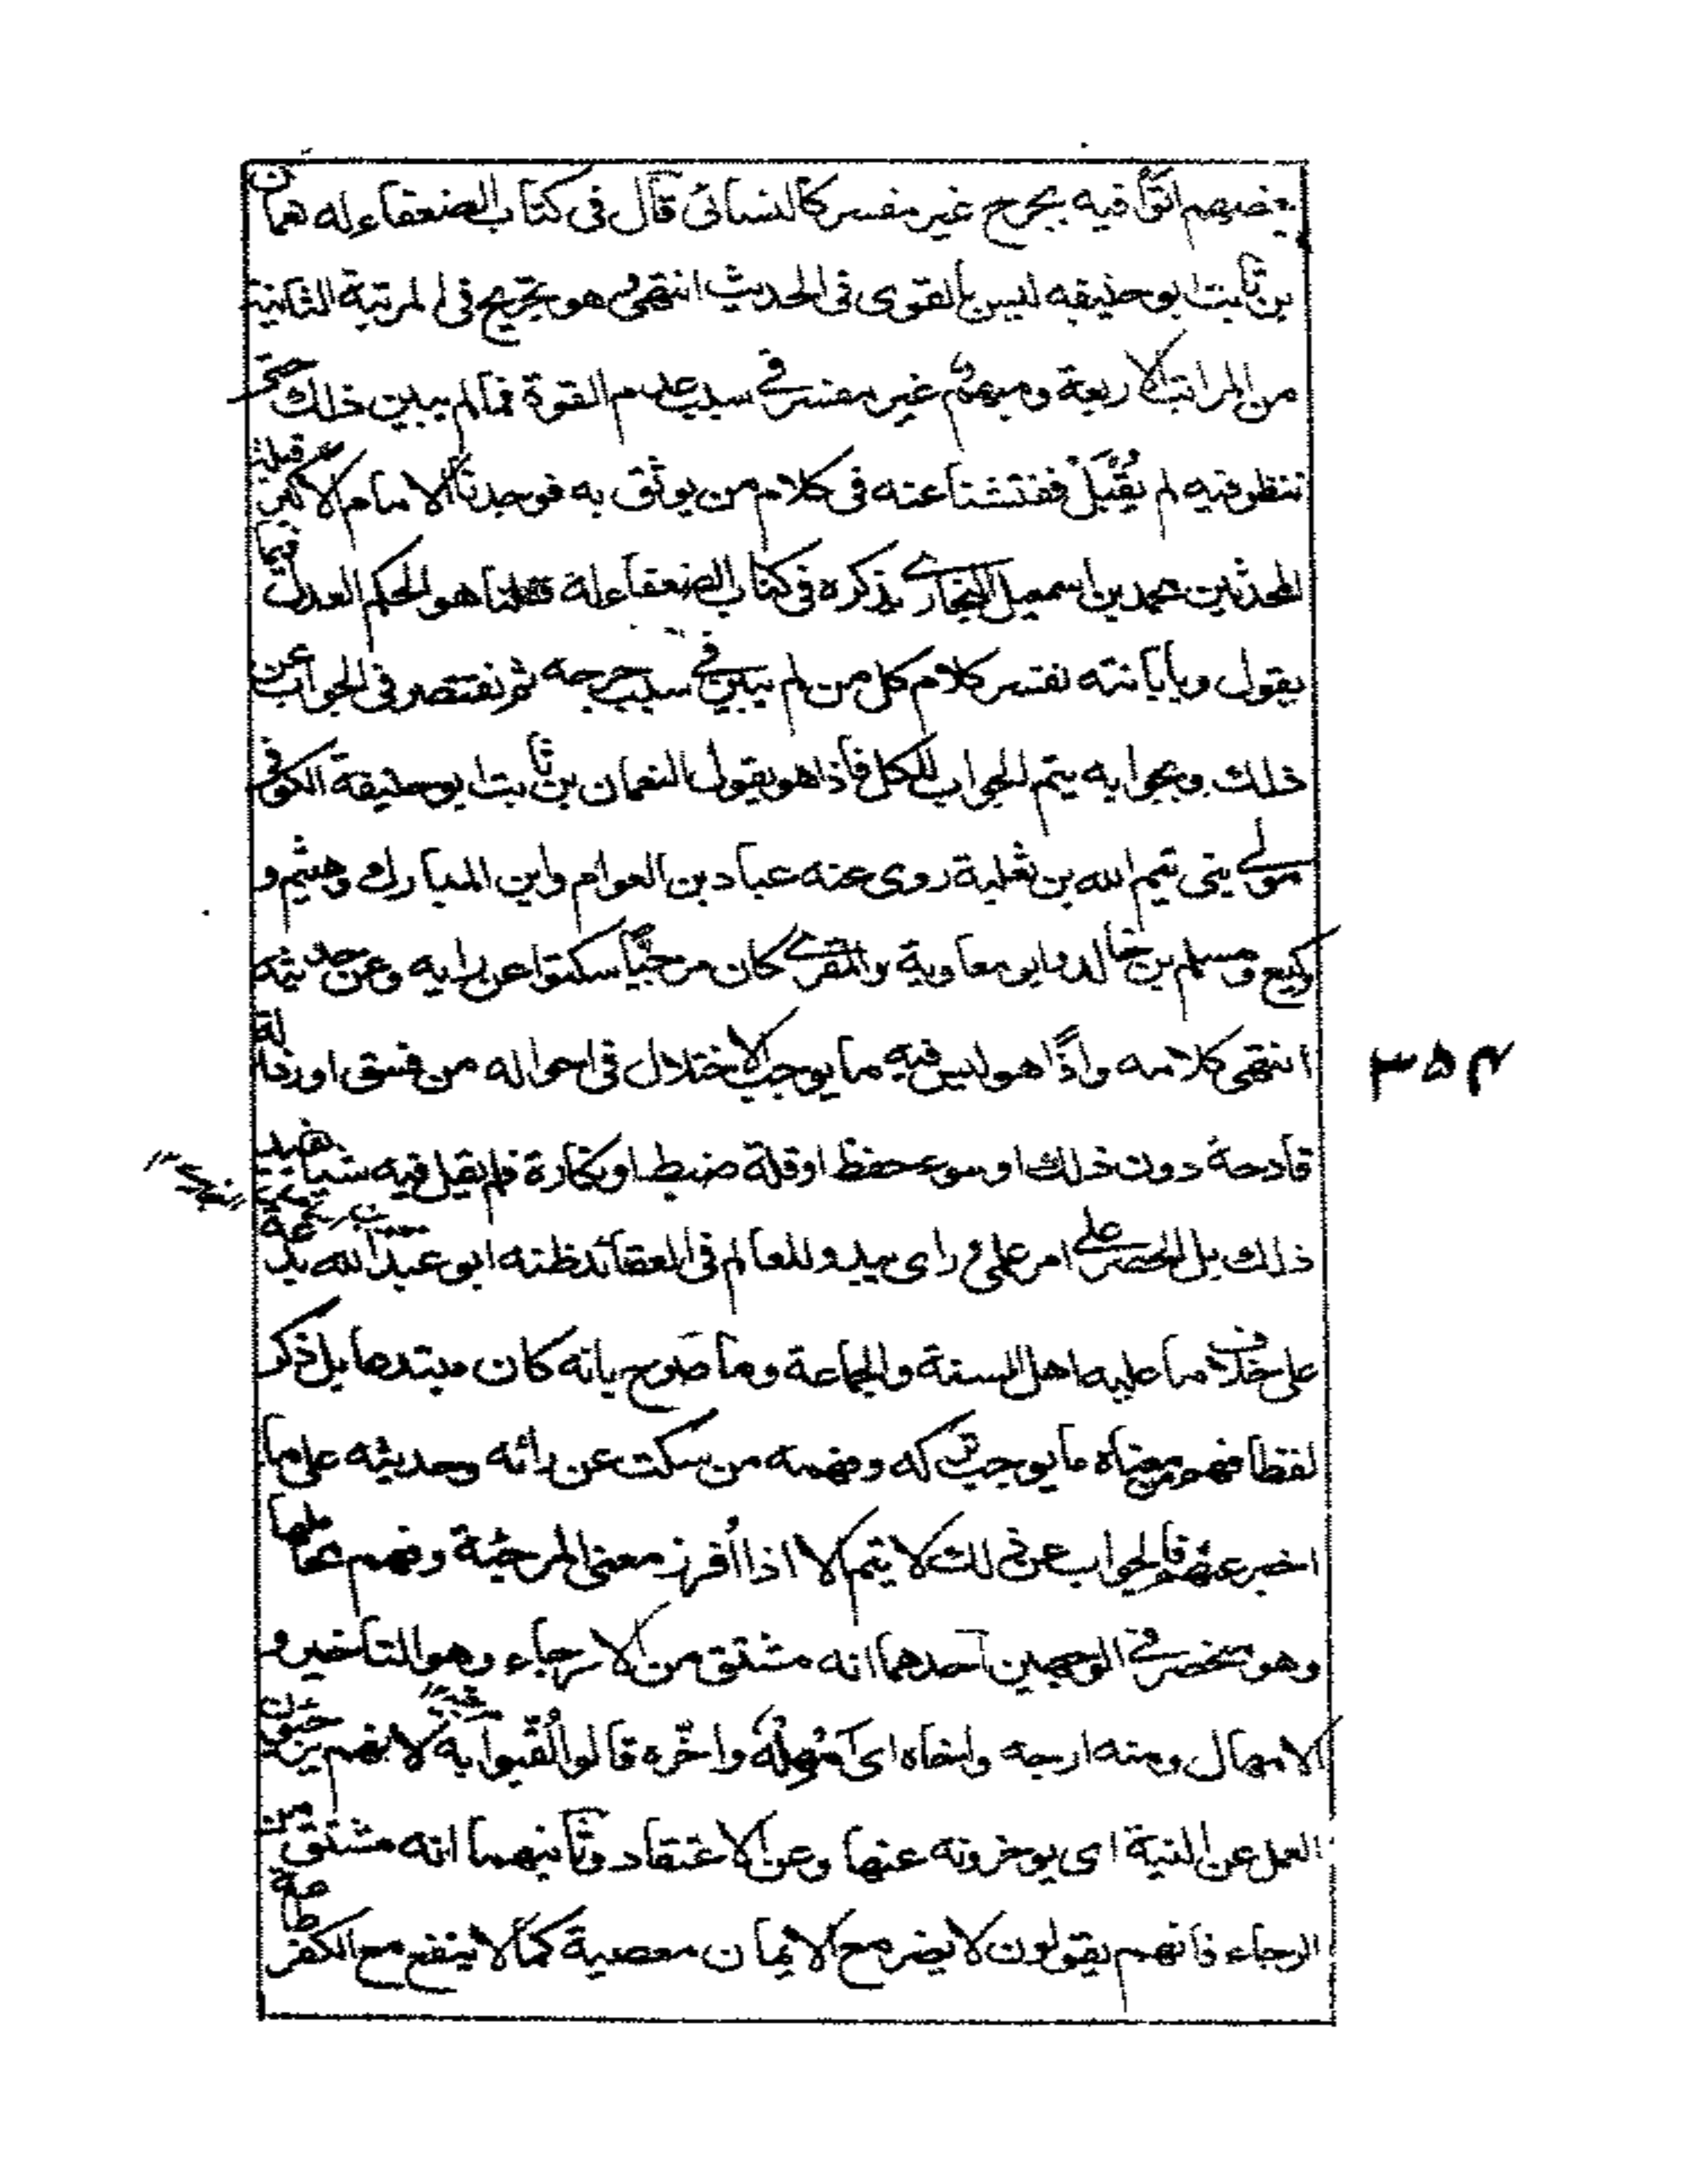 بعضهم اتوا فيه بجرح غير مفسر كالنسائى قال فى كتاب الضعفاء له نعمان
بن ثابت ابو حنيفه ليس بالقوى فى الحديث انتهى وهو تجريح فى المرتبة الثانية
من المراتب الاربعة ومبهم غير مفسر فى سبب عدم القوة فما لم يبين ذلك حتى
ننظر فيه لم يُقْبَلْ ففتشنا عنه فى كلام من يوثق به فوجدنا الامام الاكبر قبلة
المحدثين محمد بن اسمعيل البخارى يذكره فى كتاب الضعفاء له فقلنا هو الحكم العدل فيما
يقول وبابانته نفسر كلام كل من لم يبين فى سبب جرحه ثم نقتصر فى الجواب عن
ذلك وبجوابه يتم الجواب للكل فاذا هو يقول النعمان بن ثابت ابو حنيفة الكوفى
مولى بنى تيم الله بن ثعلبة روى عنه عباد بن العوام وابن المبارك وهشيم و
وكيع ومسلم بن خالد وابو معاوية والمقرى كان مرجئًا سكتوا عن رايه وعن حديثه
انتهى كلامه واذًا هو ليس فيه ما يوجب الاختلال فى احواله من فسق او رذالة
قادحة دون ذلك او سوء حفظ او قلة ضبط او نكارة فلم يقل فيه شيأ
ذلك بل انحصر على امر علمى وراى يبدو للعالم فى العقائد ظنه ابو عبد الله بدعة
على خلاف ما عليه اهل السنة والجماعة وما صرح بانه كان مبتدعا بل ذكر
لفظا فهم من معناه ما يوجب تركه وفهمه من سكت عن رائه وحديثه على ما
اخبر عنهم فالجواب عن ذلك لا يتم الا اذا اُفرز معنى المرجئة وفهم
وهو منحصر فى الوجهين احدهما انه مشتق من الارجاء وهو التاخير و
الامهال ومنه ارجه واخاه اى اَمْهِلْهُ واخّره قالوا لُقّبوا به لانهم يرجئون
العمل عن النية اى يوخرونه عنها وعن الاعتقاد وثانيهما انه مشتق من
الرجاء فانهم يقولون لا يضر مع الايمان معصية كما لا ينفع مع الكفر طاعة
٣٥٢